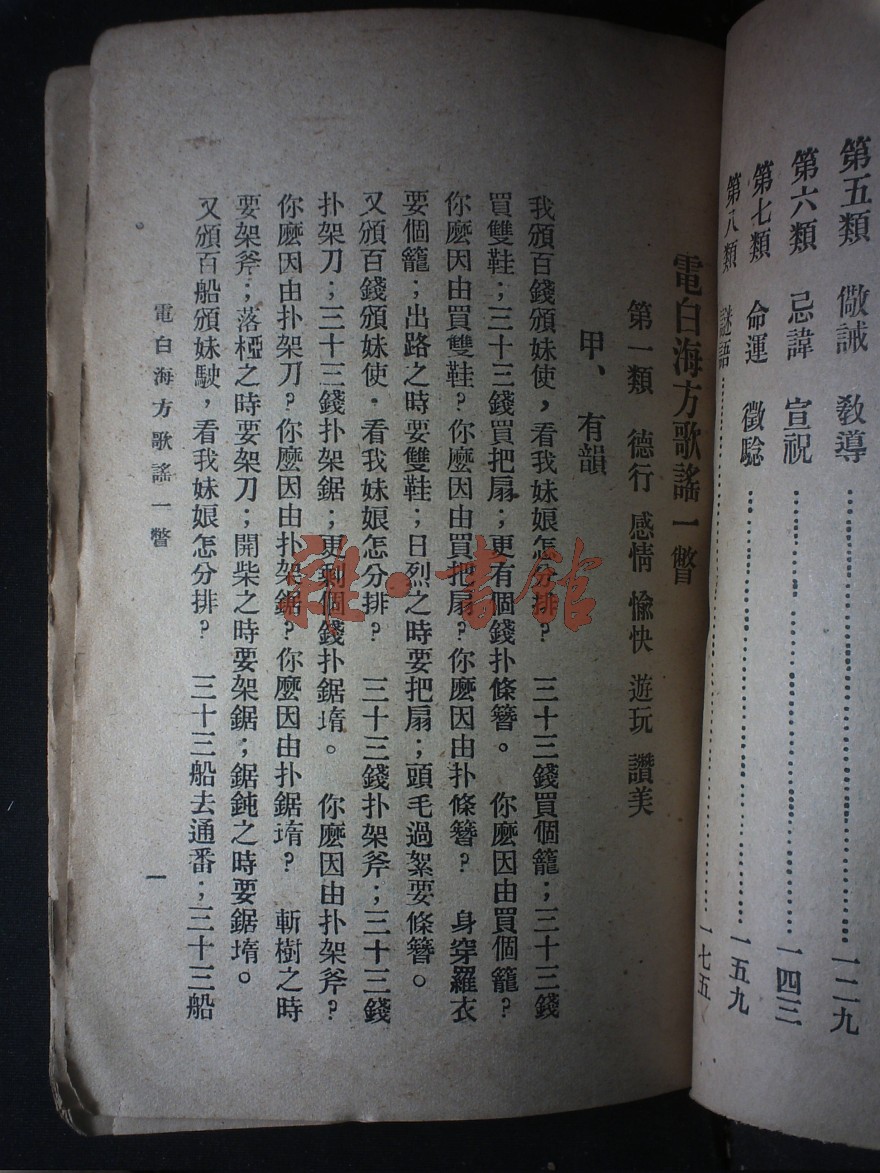 第五類　儆誡　敎導……一二九
第六類　忌諱　宣祝……一四三
第七類　命運　徵驗……一五九
第八類　謎語……一七五
電白海方歌謠一瞥
第一類　德行　感情　愉快　遊玩　讚美
甲、有韻
我頒百錢頒妹使，看我妹娘怎分排？　三十三錢買個籠；三十三錢
買雙鞋；三十三錢買把扇；更有個錢扑條簪。　你麼因由買個籠？
你麼因由買雙鞋？你麼因由買把扇？你麼因由扑條簪？　身穿羅衣
要個籠；出路之時要雙鞋；日烈之時要把扇；頭毛過絮要條簪。
又頒百錢頒妹使．看我妹娘怎分排？　三十三錢扑架斧；三十三錢
扑架刀；三十三錢扑架鋸；更剩個錢扑鋸堶。　你麼因由扑架斧？
你麼因由扑架刀？你麼因由扑架鋸？你麼因由扑鋸堶？　斬樹之時
要架斧；落椏之時要架刀；開柴之時要架鋸；鋸鈍之時要鋸堶。
又頒百船頒妹駛，看我妹娘怎分排？　三十三船去通番；三十三船
電白海方歌謠一瞥
一
雜·書館